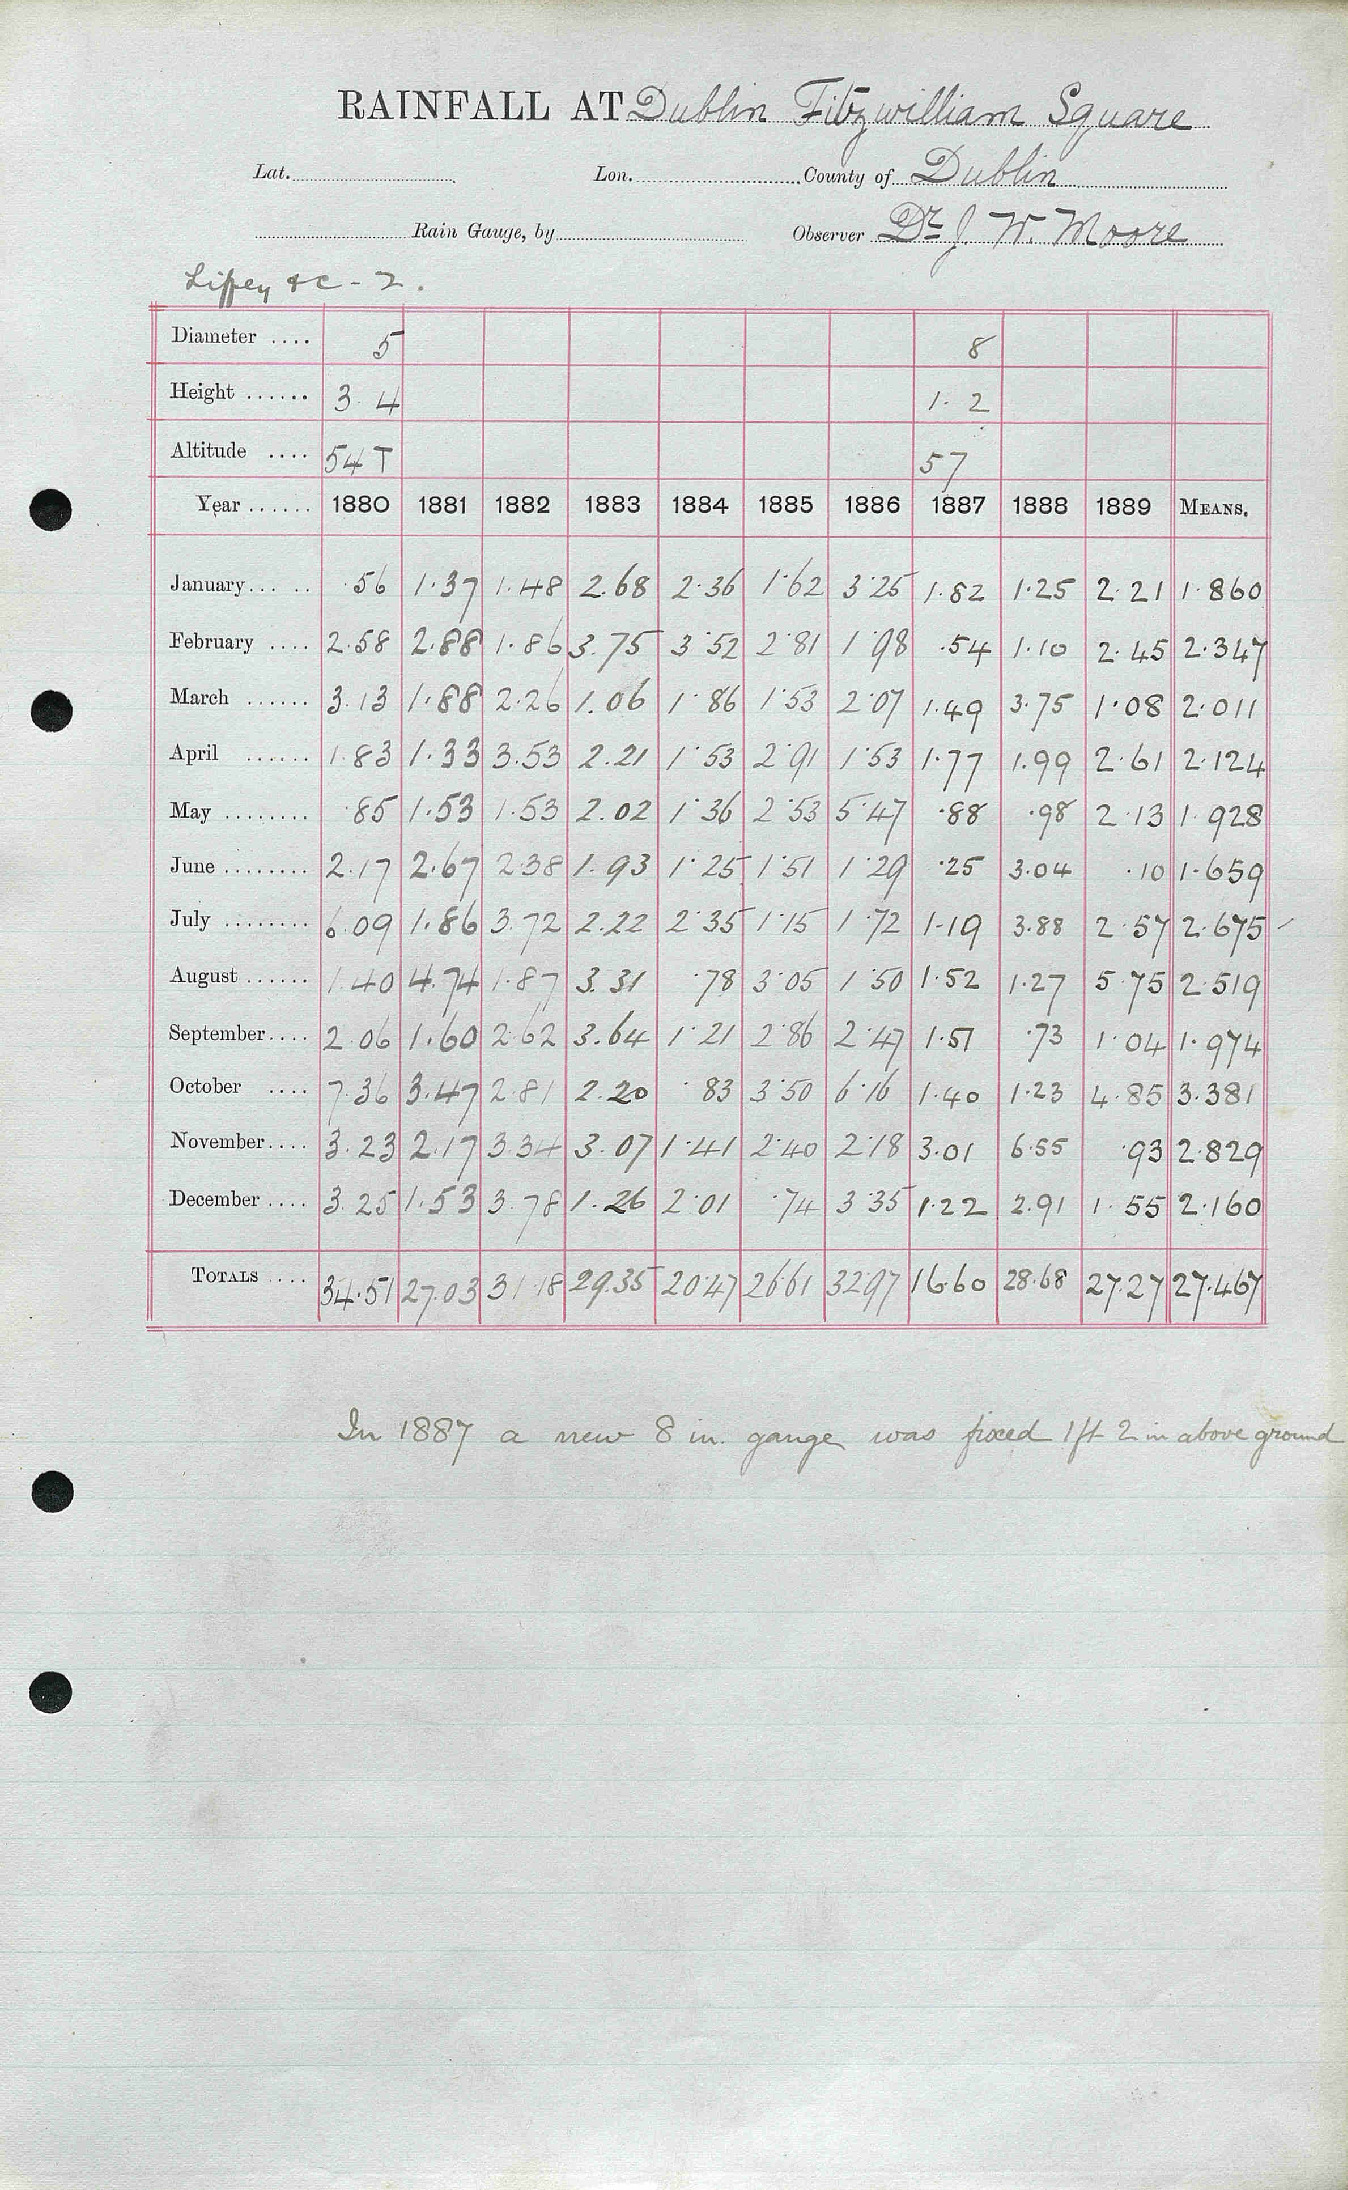 RAINFALL AT Dublin Fitzwilliam Square
Lat. Lon. County of Dublin
Rain Gauge, by Observer Dr J. W. Moore
Liffey &c - 2.
Diameter .... 5 8
Height ...... 3 4 1. 2
Altitude .... 54 T 57
Year ...... 1880 1881 1882 1883 1884 1885 1886 1887 1888 1889 MEANS.
January ...... .56 1.37 1.48 2.68 2.36 1.62 3.25 1.82 1.25 2.21 1.860
February .... 2.58 2.88 1.86 3.75 3.52 2.81 1.98 .54 1.10 2.45 2.347
March ...... 3.13 1.88 2.26 1.06 1.86 1.53 2.07 1.49 3.75 1.08 2.011
April ...... 1.83 1.33 3.53 2.21 1.53 2.91 1.53 1.77 1.99 2.61 2.124
May ........ .85 1.53 1.53 2.02 1.36 2.53 5.47 .88 .98 2.13 1.928
June ........ 2.17 2.67 2.38 1.93 1.25 1.51 1.29 .25 3.04 .10 1.659
July ........ 6.09 1.86 3.72 2.22 2.35 1.15 1.72 1.19 3.88 2.57 2.675
August ...... 1.40 4.74 1.87 3.31 .78 3.05 1.50 1.52 1.27 5.75 2.519
September .... 2.06 1.60 2.62 3.64 1.21 2.86 2.47 1.51 .73 1.04 1.974
October .... 7.36 3.47 2.81 2.20 .83 3.50 6.16 1.40 1.23 4.85 3.381
November .... 3.23 2.17 3.34 3.07 1.41 2.40 2.18 3.01 6.55 .93 2.829
December .... 3.25 1.53 3.78 1.26 2.01 .74 3.35 1.22 2.91 1.55 2.160
TOTALS .... 34.51 27.03 31.18 29.35 20.47 26.61 32.97 16.60 28.68 27.27 27.467
In 1887 a new 8 in. gauge was fixed 1 ft 2 in above ground